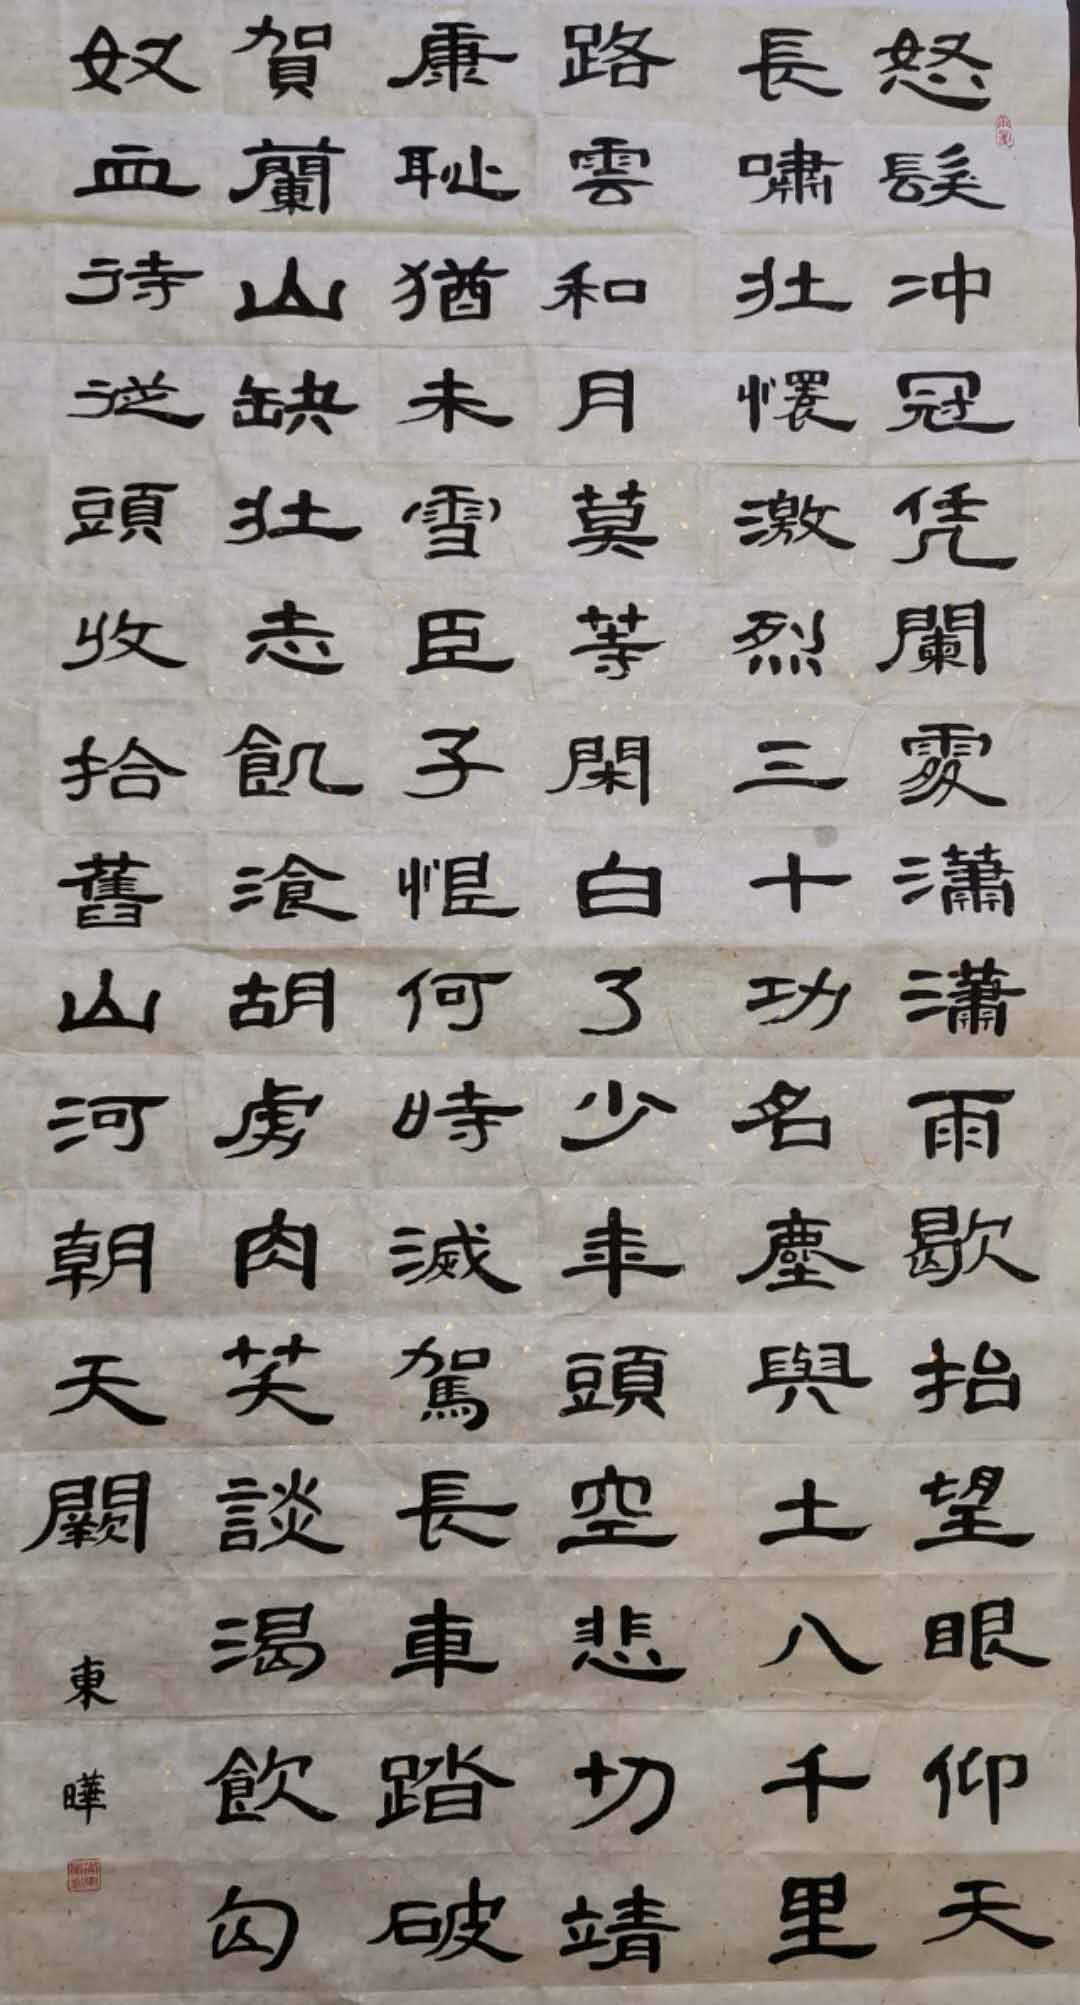 怒髮冲冠凭闌處瀟瀟雨歇抬望眼仰天
長嘯壯懷激烈三十功名塵與土八千里
路雲和月莫等閑白了少年頭空悲切靖
康恥猶未雪臣子恨何時滅駕長車踏破
賀蘭山缺壯志飢飡胡虜肉笑談渴飲匈
奴血待從頭收拾舊山河朝天闕
東曄